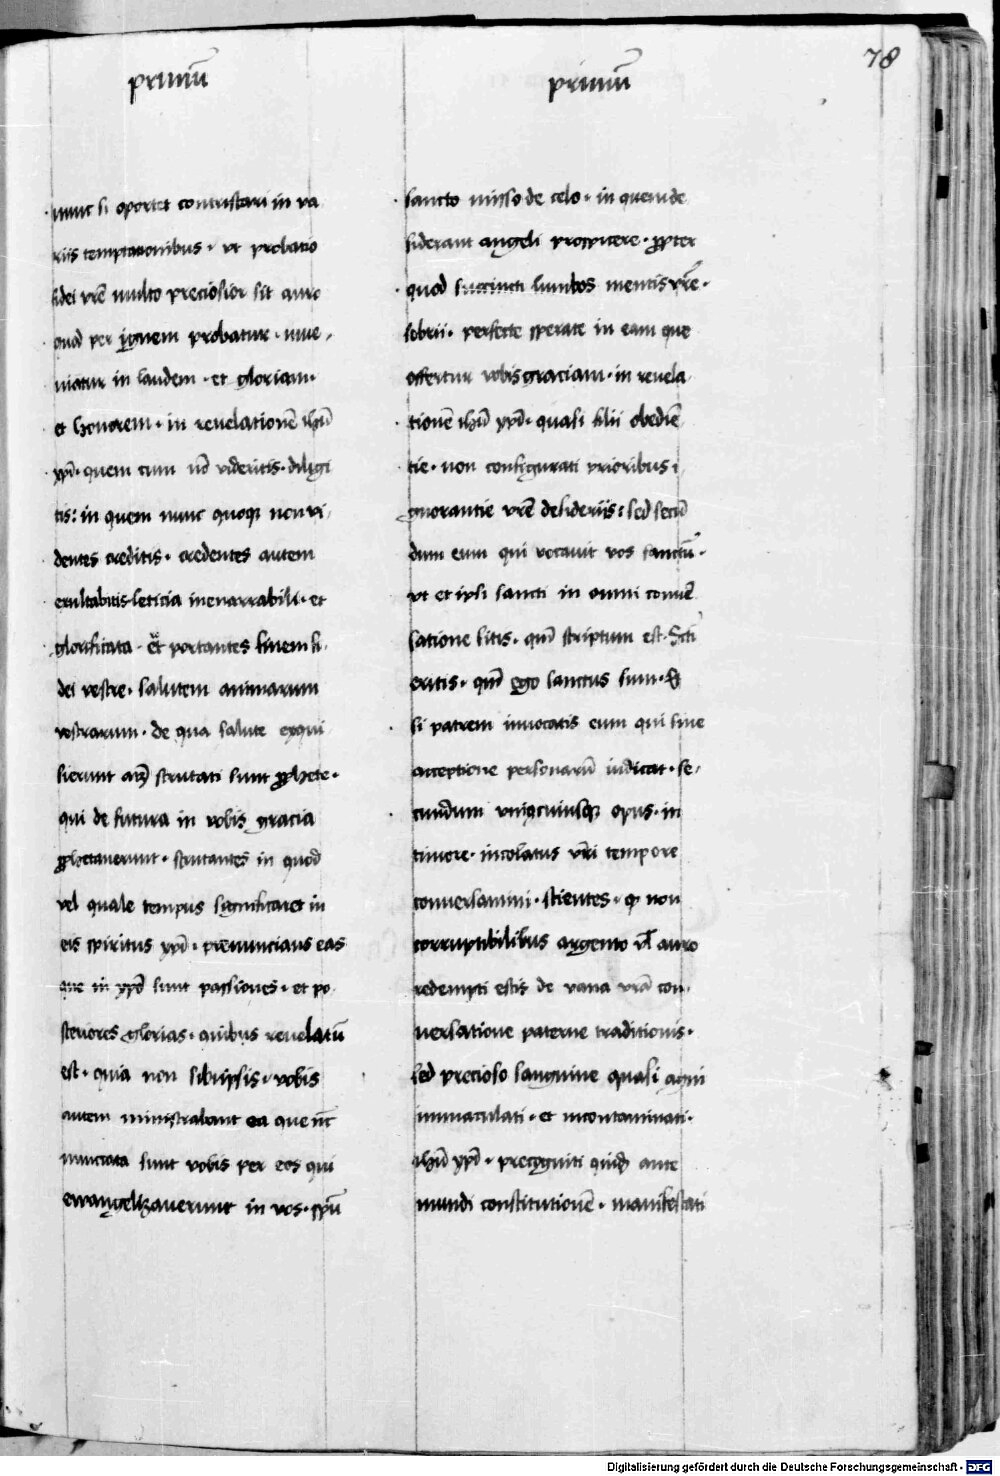 primū
primū
78
nunc si oportet contristari in va
riis temptationibus · vt probatio
fidei vrē multo preciosior sit auro
quod per ignem probatur · inue
niatur in laudem · et gloriam ·
et honorem · in reuelationē ihū
xpī · quem cum nō videritis · diligi
tis : in quem nunc quoqȝ non vi
dentes creditis · credentes autem
exultabitis leticia inenarrabili · et
glorificata · et portantes finem fi
dei vestre · salutem animarum
vestrarum · de qua salute exqui
sierunt atqȝ scrutati sunt prophete ·
qui de futura in vobis gracia
prophetauerunt · scrutantes in quod
vel quale tempus significaret in
eis spiritus xpī · prenuncians eas
que in xpō sunt passiones · et po
steriores glorias · quibus reuelatū
est · quia non sibiipsis · vobis
autem ministrabant ea que nūc
nunciata sunt vobis per eos qui
ewangelizauerunt in vos · spū
sancto misso de celo · in quem de
siderant angeli prospicere · propter
quod succincti lumbos mentis vrē ·
sobrii · perfecte sperate in eam que
offertur vobis graciam · in reuela
tionē ihū xpī · quasi filii obediē
tie · non configurati prioribus i
gnorantie vrē desideriis : sed secū
dum eum qui vocauit vos sanctū ·
vt et ipsi sancti in omni conuer̄
satione sitis · qm̄ scriptum est · Scti
eritis · qm̄ ego sanctus sum · Et
si patrem inuocatis eum qui sine
acceptione personarū iudicat · se
cundum vniuscuiusqȝ opus · in
timore · incolatus vr̄i tempore
conuersamini · scientes · qꝫ non
corruptibilibus argento vł auro
redempti estis de vana vrā con
uersatione paterne traditionis ·
sed precioso sanguine quasi agni
immaculati · et incontaminati ·
ihū xpī · precogniti quidē ante
mundi constitutionē · manifestati
Digitalisierung gefördert durch die Deutsche Forschungsgemeinschaft - DFG